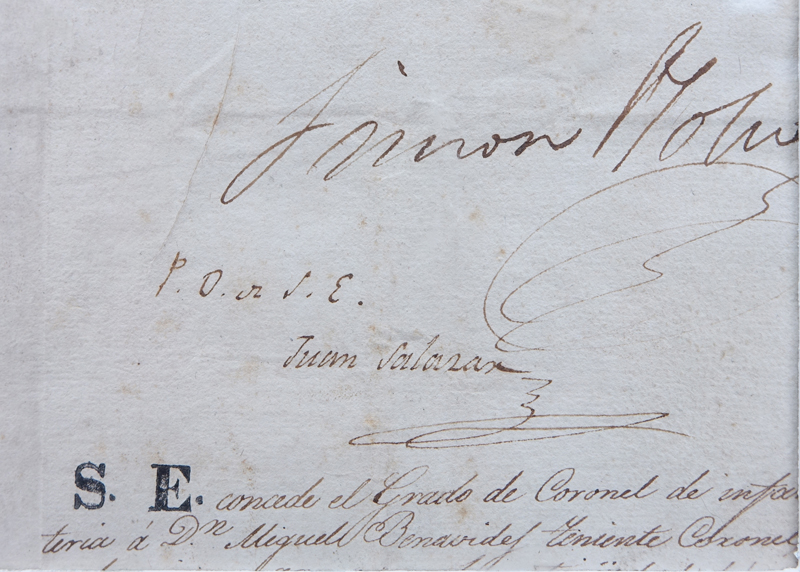 Simon Boliv
P. O. de S. E.
Juan Salazar
S. E. concede el Grado de Coronel de infan
teria á Dn Miguel Benavides Teniente Coronel